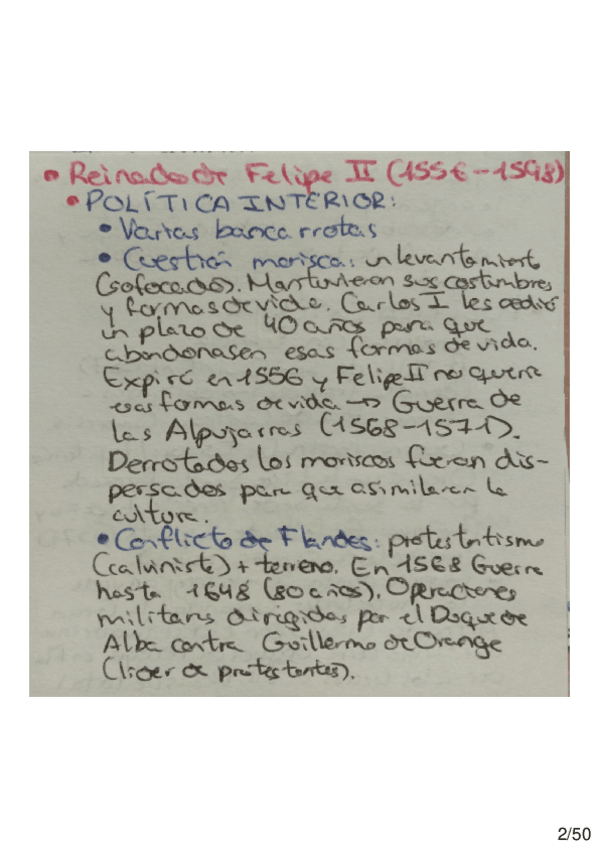 • Reinado de Felipe II (1556-1598)
• POLÍTICA INTERIOR:
• Varias bancarrotas
• Cuestión morisca: un levantamiento
(sofocado). Mantuvieron sus costumbres
y formas de vida. Carlos I les cedió
un plazo de 40 años para que
abandonasen esas formas de vida.
Expiró en 1556 y Felipe II no quería
esas formas de vida → Guerra de
las Alpujarras (1568-1571).
Derrotados los moriscos fueron dis-
persados para que asimilaran la
cultura.
• Conflicto de Flandes: protestantismo
(calvinista) + terreno. En 1568 Guerra
hasta 1648 (80 años). Operaciones
militares dirigidas por el Duque de
Alba contra Guillermo de Orange
(líder de protestantes).
2/50